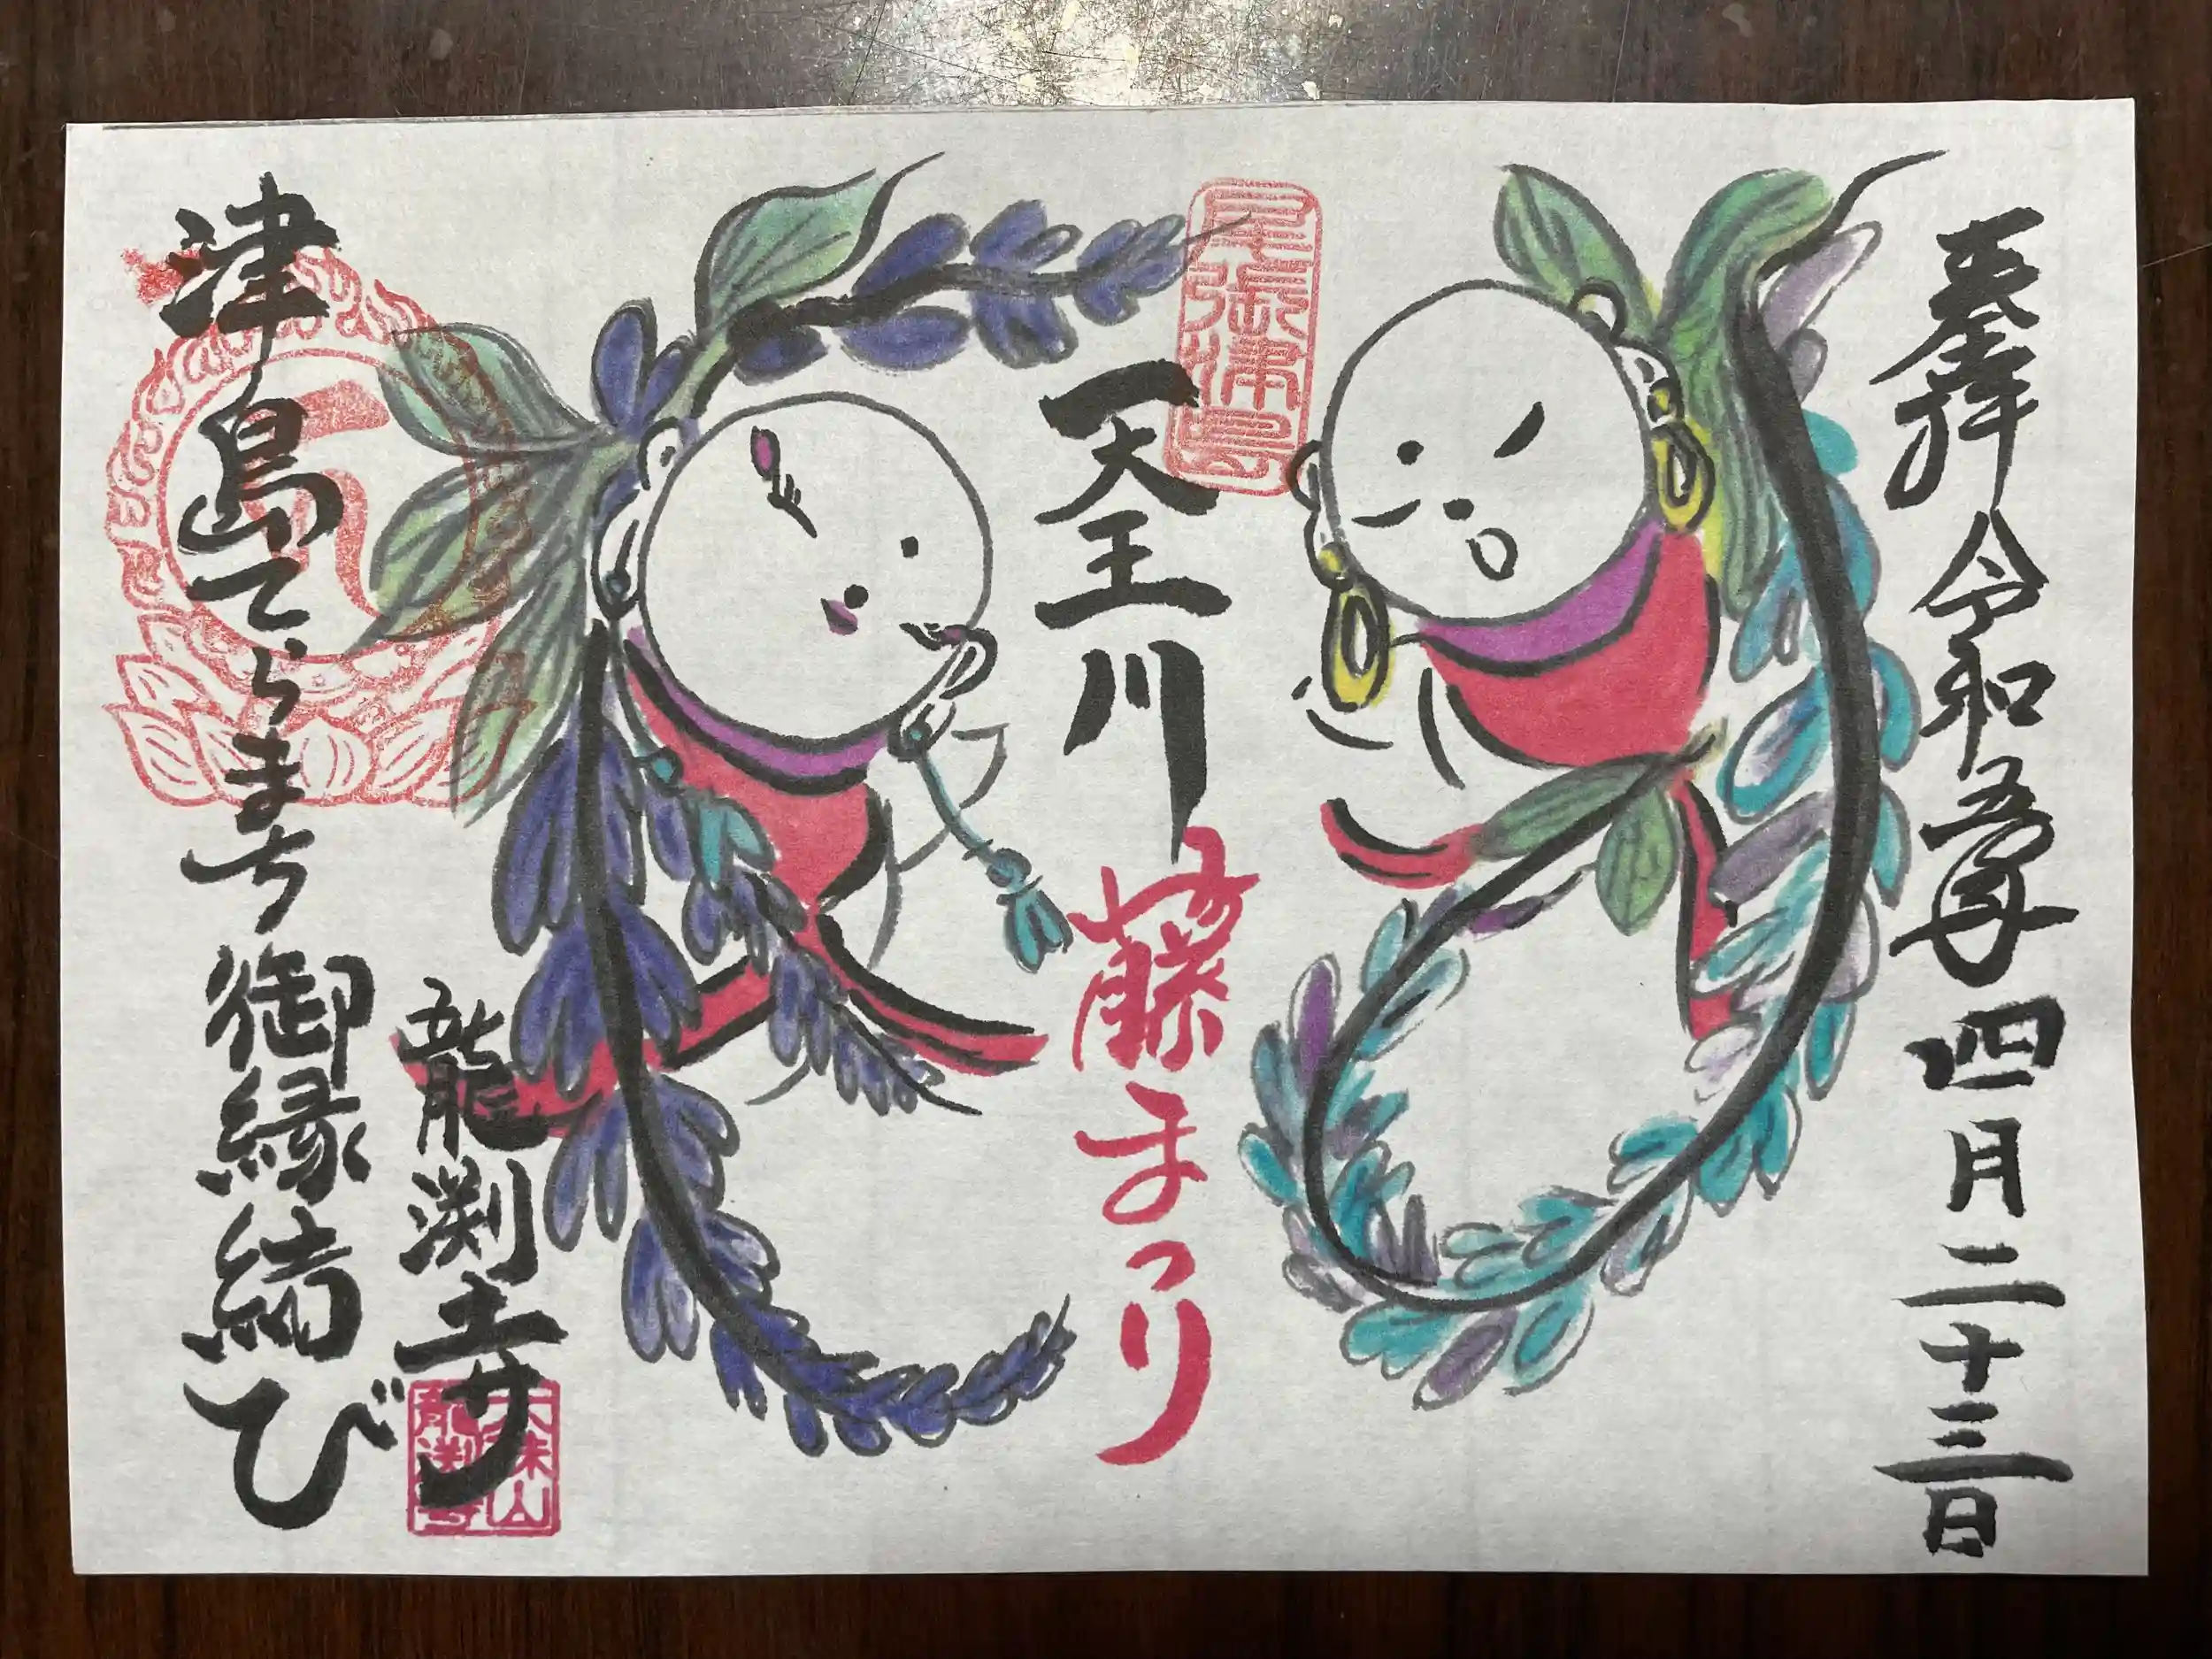 奉拝 令和五年 四月二十三日
尾張津島
天王川
藤まつり
龍渕寺
大珠山
龍渕寺
津島てらまち 御縁結び